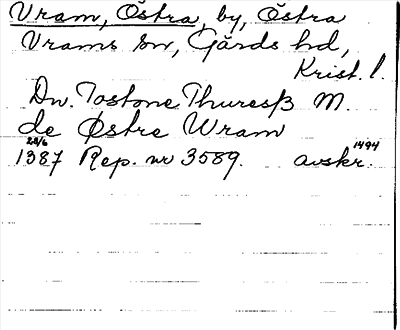 Vram, Östra, by, Östra
Vrams sn, Gärds hd,
Krist. l.
Dn. Tostone Thuresß M
de Østre Wram
28/6 1494
1387 Rep. nr 3589. avskr.